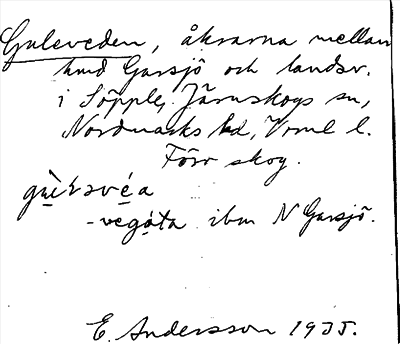 Guleveden, åkrarna mellan
hmd Garsjö och landsv.
i Söpple, Järnskogs sn,
Nordmarks hd, Vrml l.
Förr skog.
-vegáta ibm N Garsjö.
E. Andersson 1935.